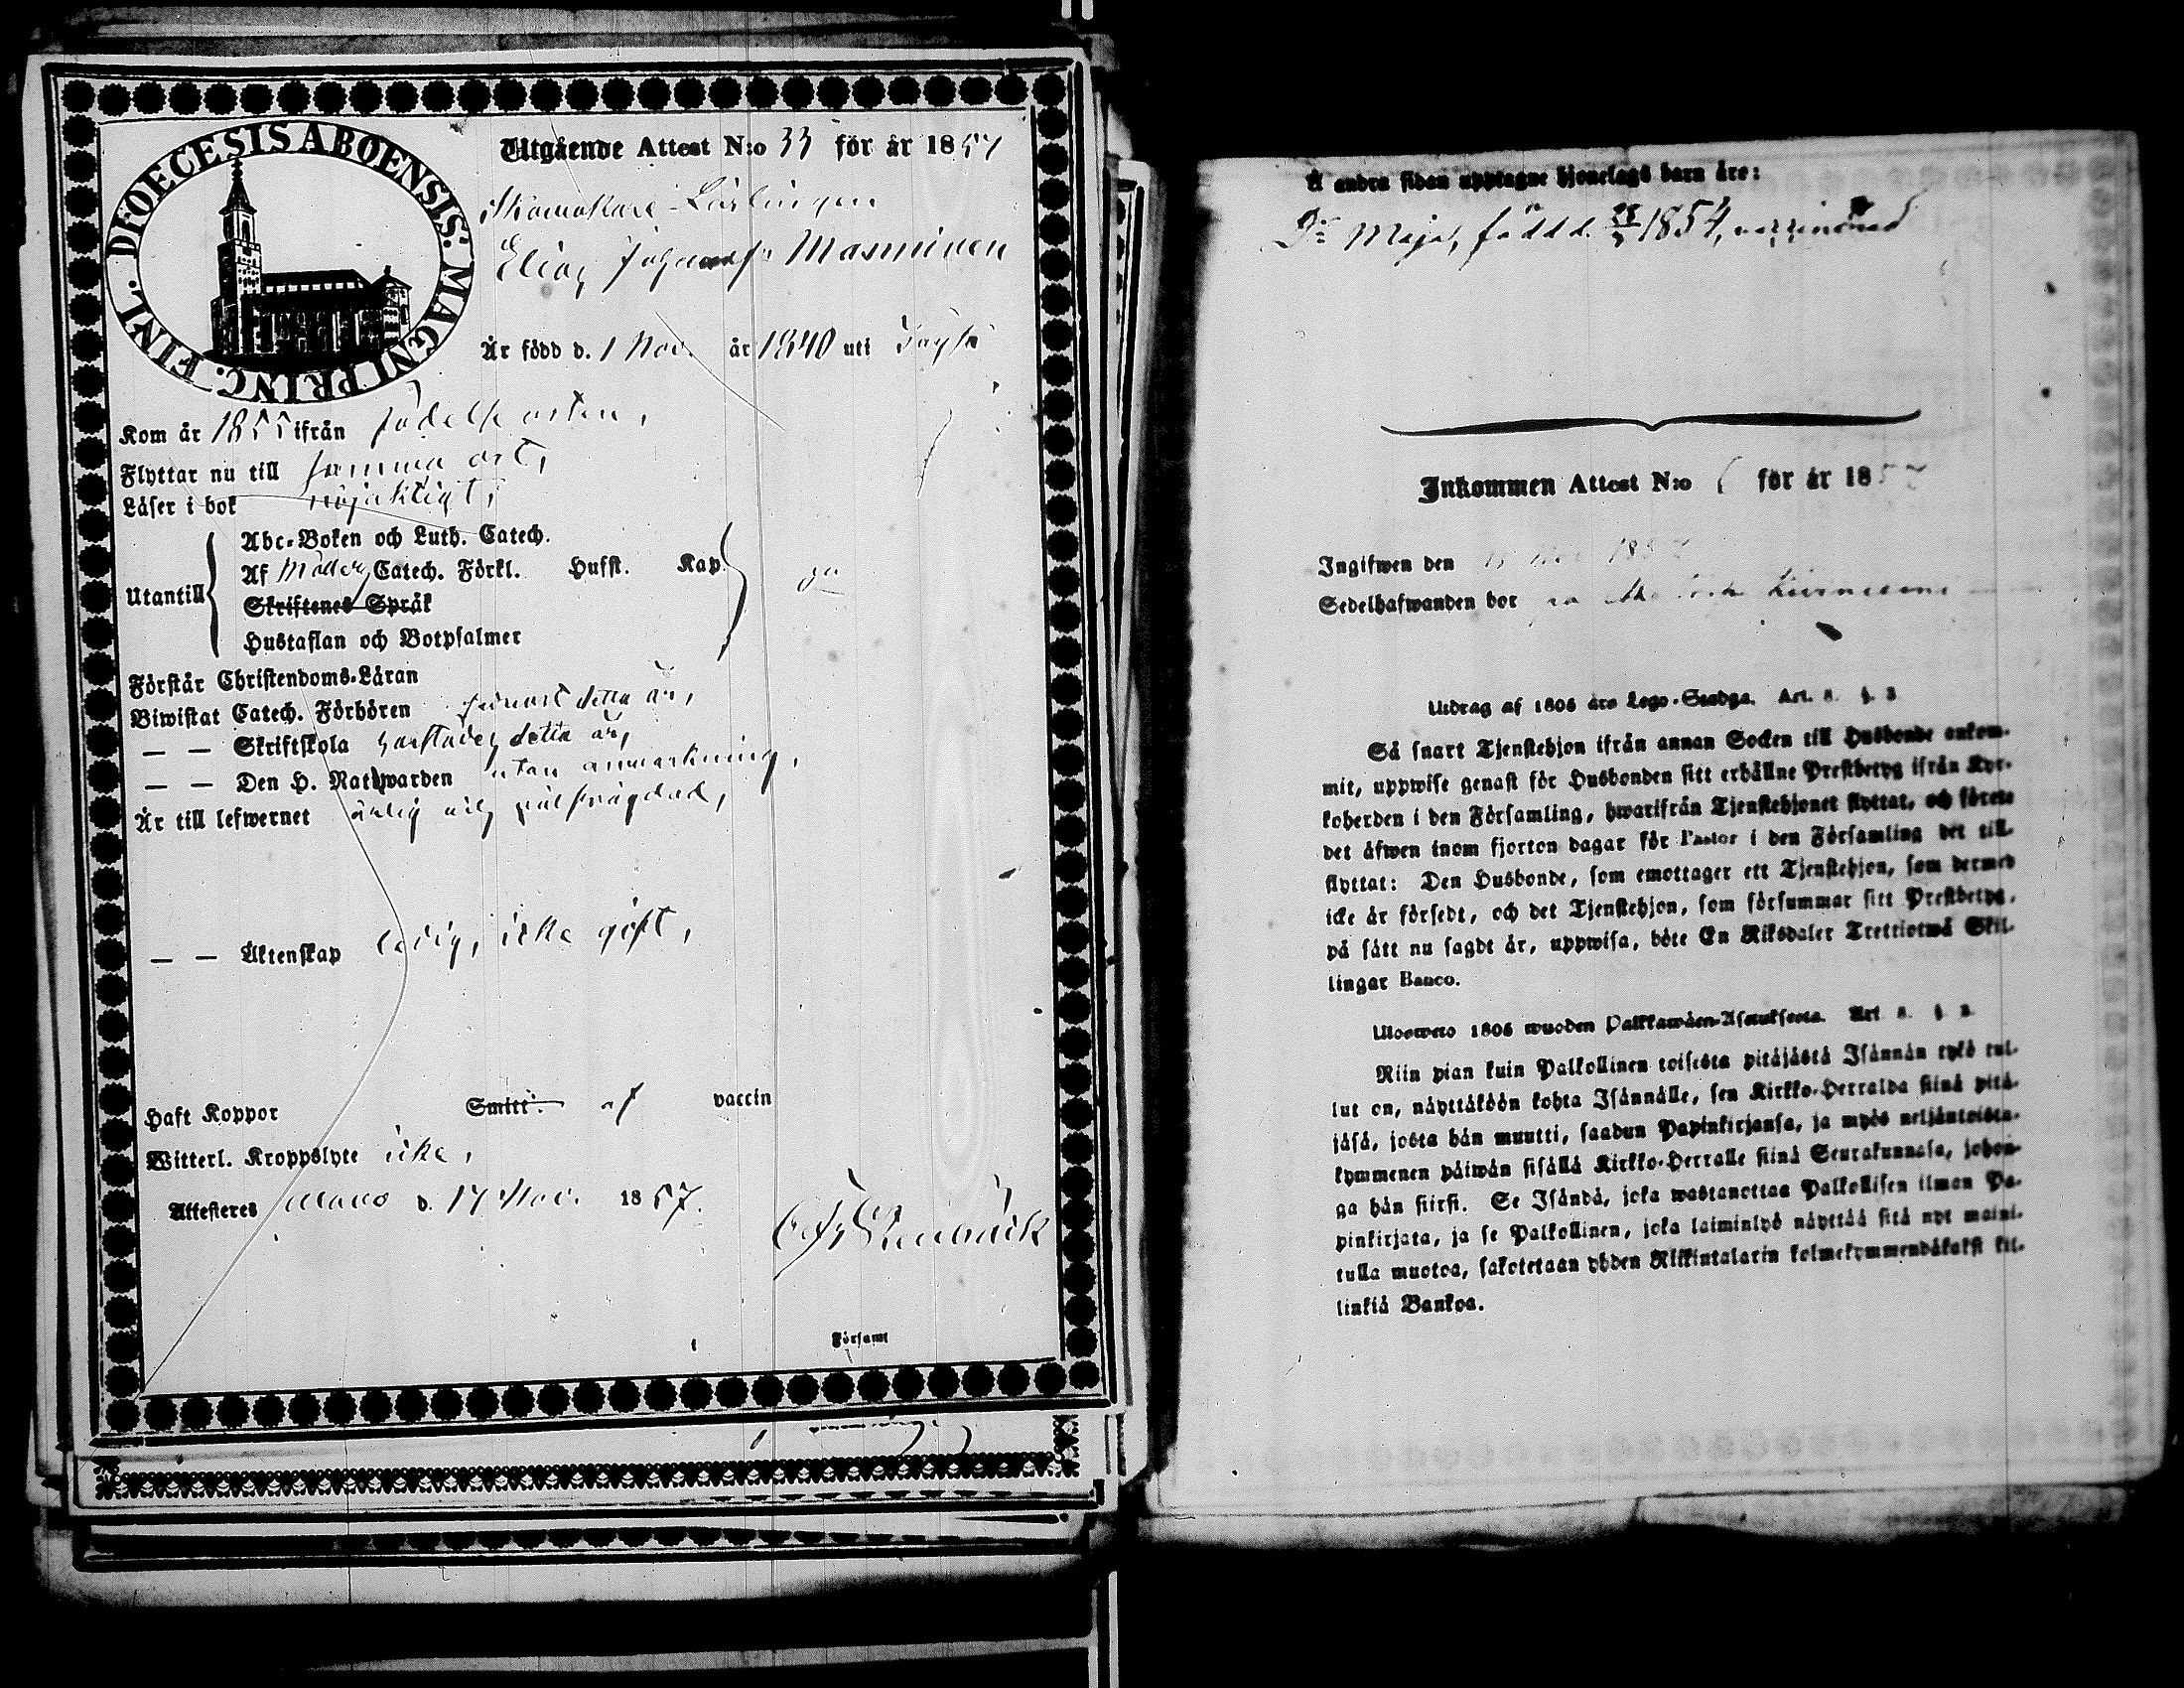 DIOECESIS ABOENSIS. MAGNI PRINC. FINL.
Utgående Attest N:o 33 för år 1857
Skomakare-Lärlingen
Elias Johansson Manninen
Är född d. 1 Nov. år 1840 uti
Kom år 1855 ifrån födelse orten,
Flyttar nu till samma ort,
Läser i bok nöjaktigt,
Abc-Boken och Luth. Catech.
Af Möllers Catech. Förkl. Husst. Kap.
Utantill
Skriftenes Språk
Hustaflan och Botpsalmer
Förstår Christendoms-Läran
Biwistat Catech. Förhören senast detta år,
— — Skriftskola detta år,
— — Den H. Nattwarden utan anmärkning,
Är till lefwernet ärlig och välfrägdad,
— — Äktenskap ledig, icke gift,
Haft Koppor Smitt. af vaccin
Witterl. Kroppslyte icke,
Attesteres d. 17 Nov. 1857.
Stenbäck
Församl
Å andra sidan upptagne hjonelags barn äro:
Dr Maja, född d. 1854, vaccinerad
Inkommen Attest N:o 6 för år 185
Ingifwen den
Sedelhafwanden bor
Utdrag af 1805 års Lego-Stadga. Art. 2. §. 3
Så snart Tjenstehjon ifrån annan Socken till Husbonde ankom-
mit, uppwise genast för Husbonden sitt erhållne Prestbetyg ifrån Kyr-
koherden i den Församling, hwarifrån Tjenstehjonet flyttat, och förete
det äfwen inom fjorton dagar för Pastor i den Församling det till-
flyttat: Den Husbonde, som emottager ett Tjenstehjon, som dermed
icke är försedt, och det Tjenstehjon, som försummar sitt Prestbetyg,
på sätt nu sagdt är, uppwisa, böte En Riksdaler Trettiotwå Skil-
lingar Banco.
Ulosweto 1805 wuoden Palkkawäen-Asetuksesta. Art
Niin pian kuin Palkollinen toisesta pitäjästä Isännän tykö tul-
lut on, näyttäköön kohta Isännälle, sen Kirkko-Herralda siinä pitä-
jäsä, josta hän muutti, saadun Papinkirjansa, ja myös neljäntoista-
kymmenen päiwän sisällä Kirkko-Herralle siinä Seurakunnasa, johon-
ga hän siirsi. Se Isändä, joka wastanottaa Palkollisen ilman Pa-
pinkirjata, ja se Palkollinen, joka laiminlyö näyttää sitä nyt maini-
tulla muotoa, sakotetaan yhden Riikintalarin kolmekymmendäkaksi kil-
linkiä Bankoa.